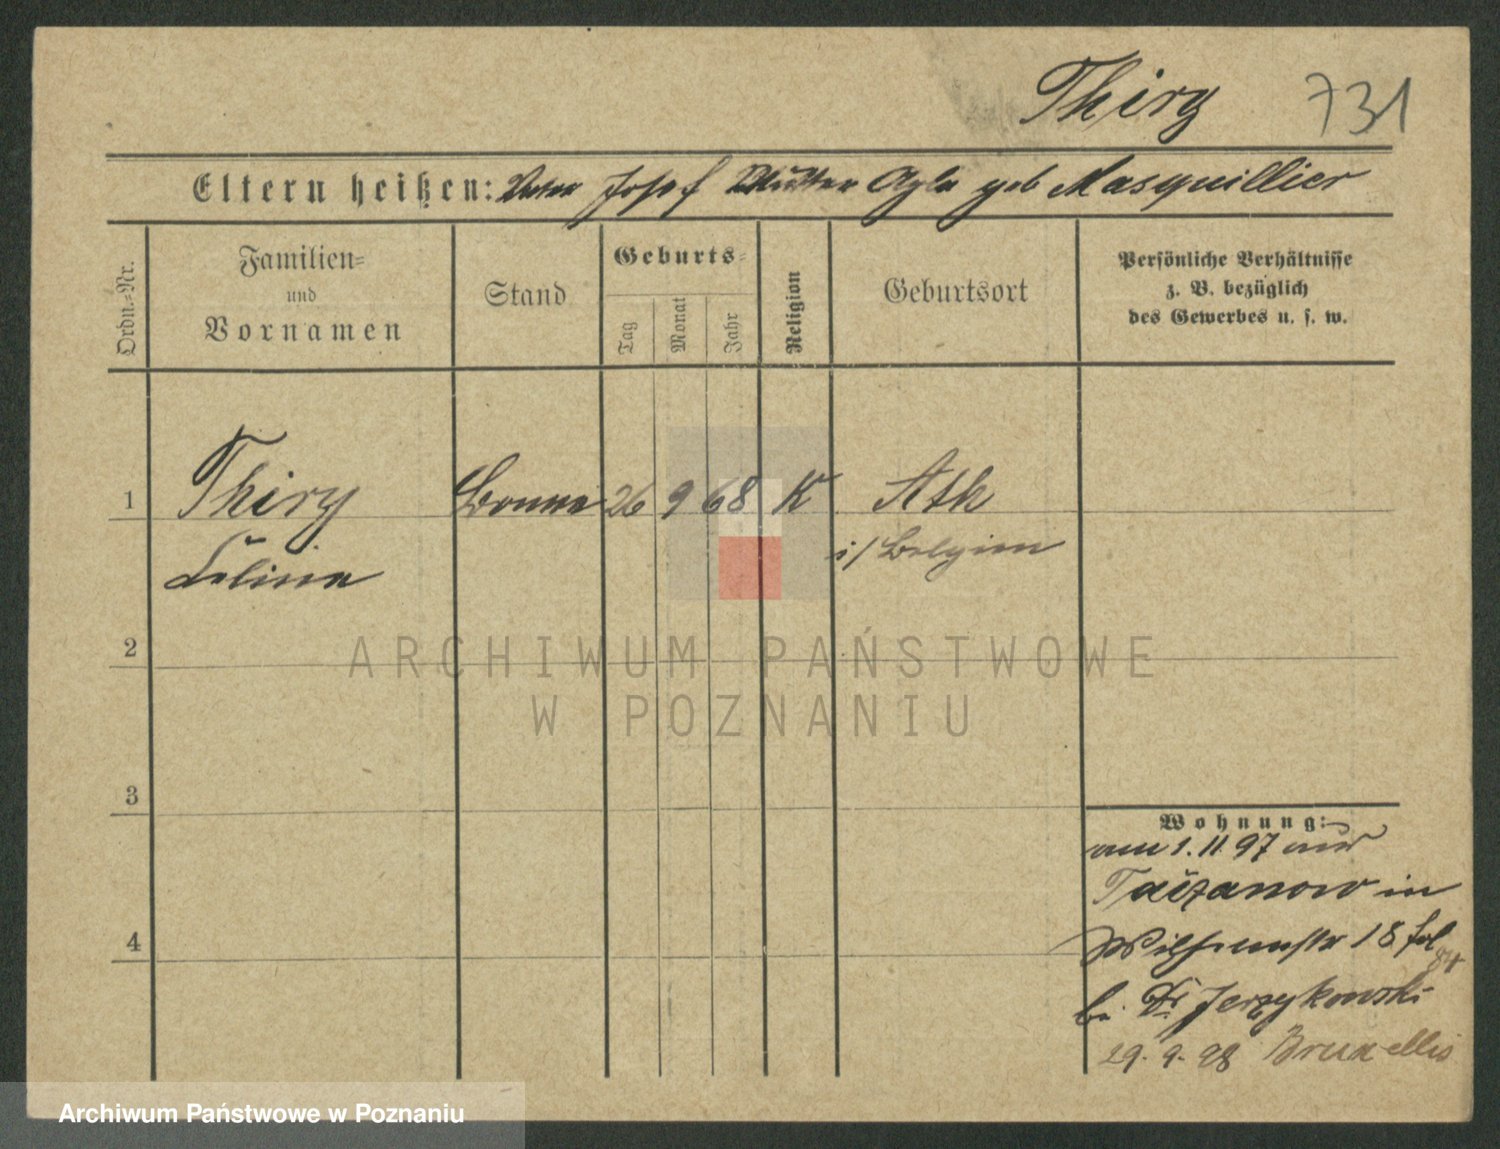 Thiry 731
Eltern heißen: Vater Josef Mutter geb Masquillier
Ordn.-Nr.
Familien-
und
Vornamen
Stand
Geburts-
Tag
Monat
Jahr
Religion
Geburtsort
Persönliche Verhältnisse
z. B. bezüglich
des Gewerbes u. s. w.
1 Thiry Bonne 26 9 68 K Ath
Célina i/Belgien
2
ARCHIWUM PAŃSTWOWE
W POZNANIU
3
Wohnung:
am 1.11.97 aus
Taczanow in
Wilhelmstr 18
4
bei Dr Jerzykowski
29.9.98 Bruxelles
Archiwum Państwowe w Poznaniu